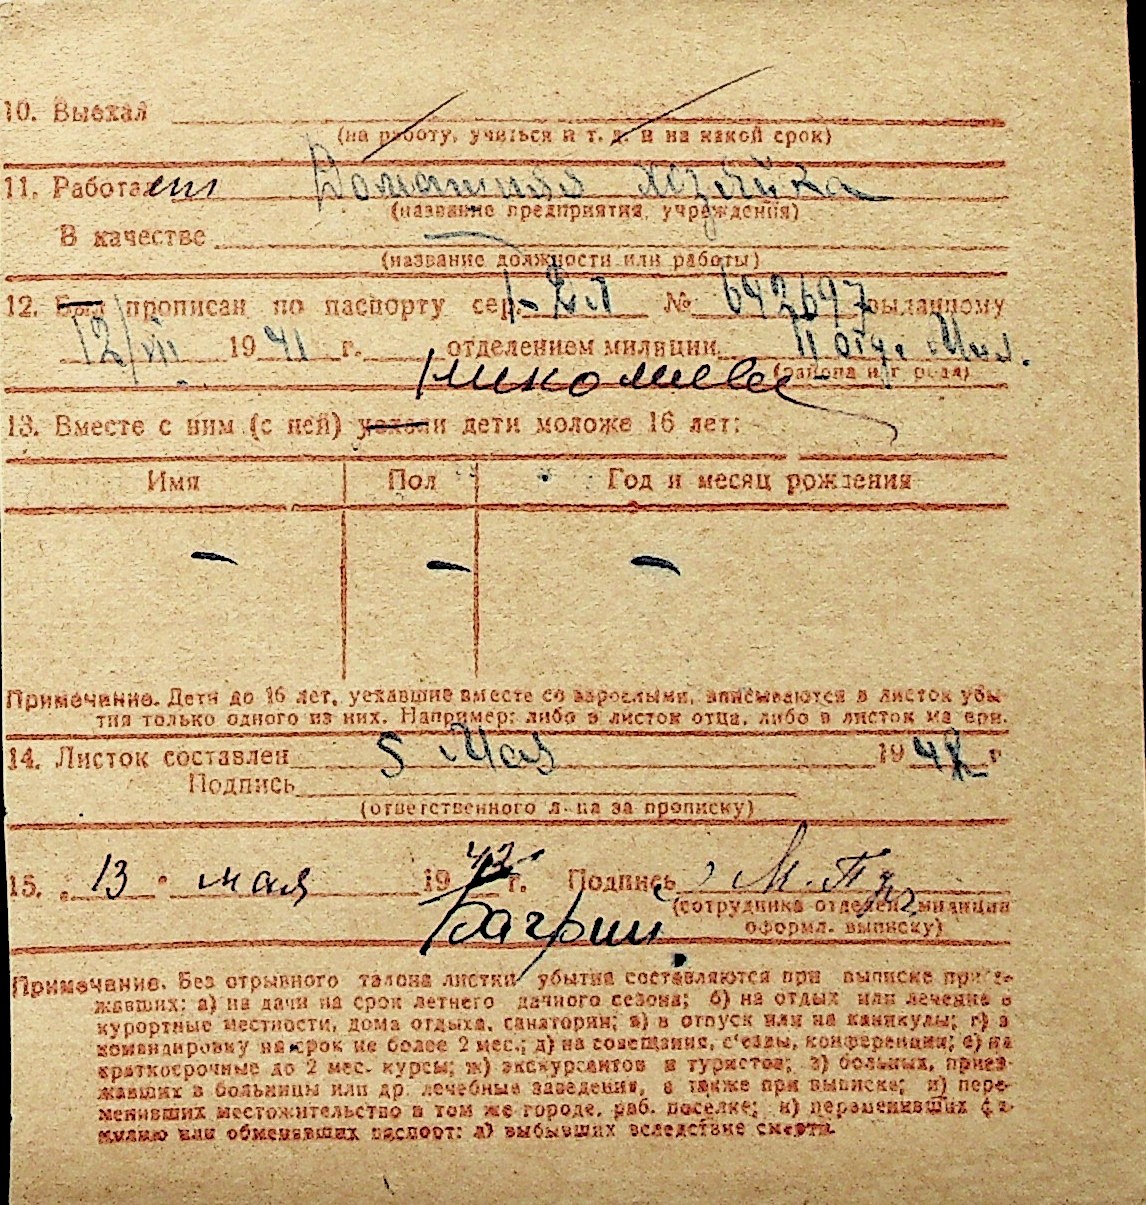 10. Выехал
(на работу, учиться и т. д. и на какой срок)
11. Работает Домашняя хозяйка
(название предприятия, учреждения)
В качестве
(название должности или работы)
12. Был прописан по паспорту сер. № 642697 выданному
12/VII 1941 г. отделением милиции II отд. Мил.
(района и города)
13. Вместе с ним (с ней) уехали дети моложе 16 лет:
Имя Пол Год и месяц рождения
— — —
Примечание. Дети до 16 лет, уехавшие вместе со взрослыми, вписываются в листок убы-
тия только одного из них. Например: либо в листок отца, либо в листок матери.
14. Листок составлен 5 Мая 1942 г
Подпись
(ответственного лица за прописку)
15. „13" мая 1942 г. Подпись
(сотрудника отделен. милиции
Багрий оформл. выписку)
Примечание. Без отрывного талона листки убытия составляются при выписке приез-
жавших: а) на дачи на срок летнего дачного сезона; б) на отдых или лечение в
курортные местности, дома отдыха, санатории; в) в отпуск или на каникулы; г) в
командировку на срок не более 2 мес.; д) на совещания, с'езды, конференции; е) на
краткосрочные до 2 мес. курсы; ж) экскурсантов и туристов; з) больных, приез-
жавших в больницы или др. лечебные заведения, а также при выписке; и) пере-
менивших местожительство в том же городе, раб. поселке; к) переменивших фа-
милию или обменявших паспорт; л) выбывших вследствие смерти.